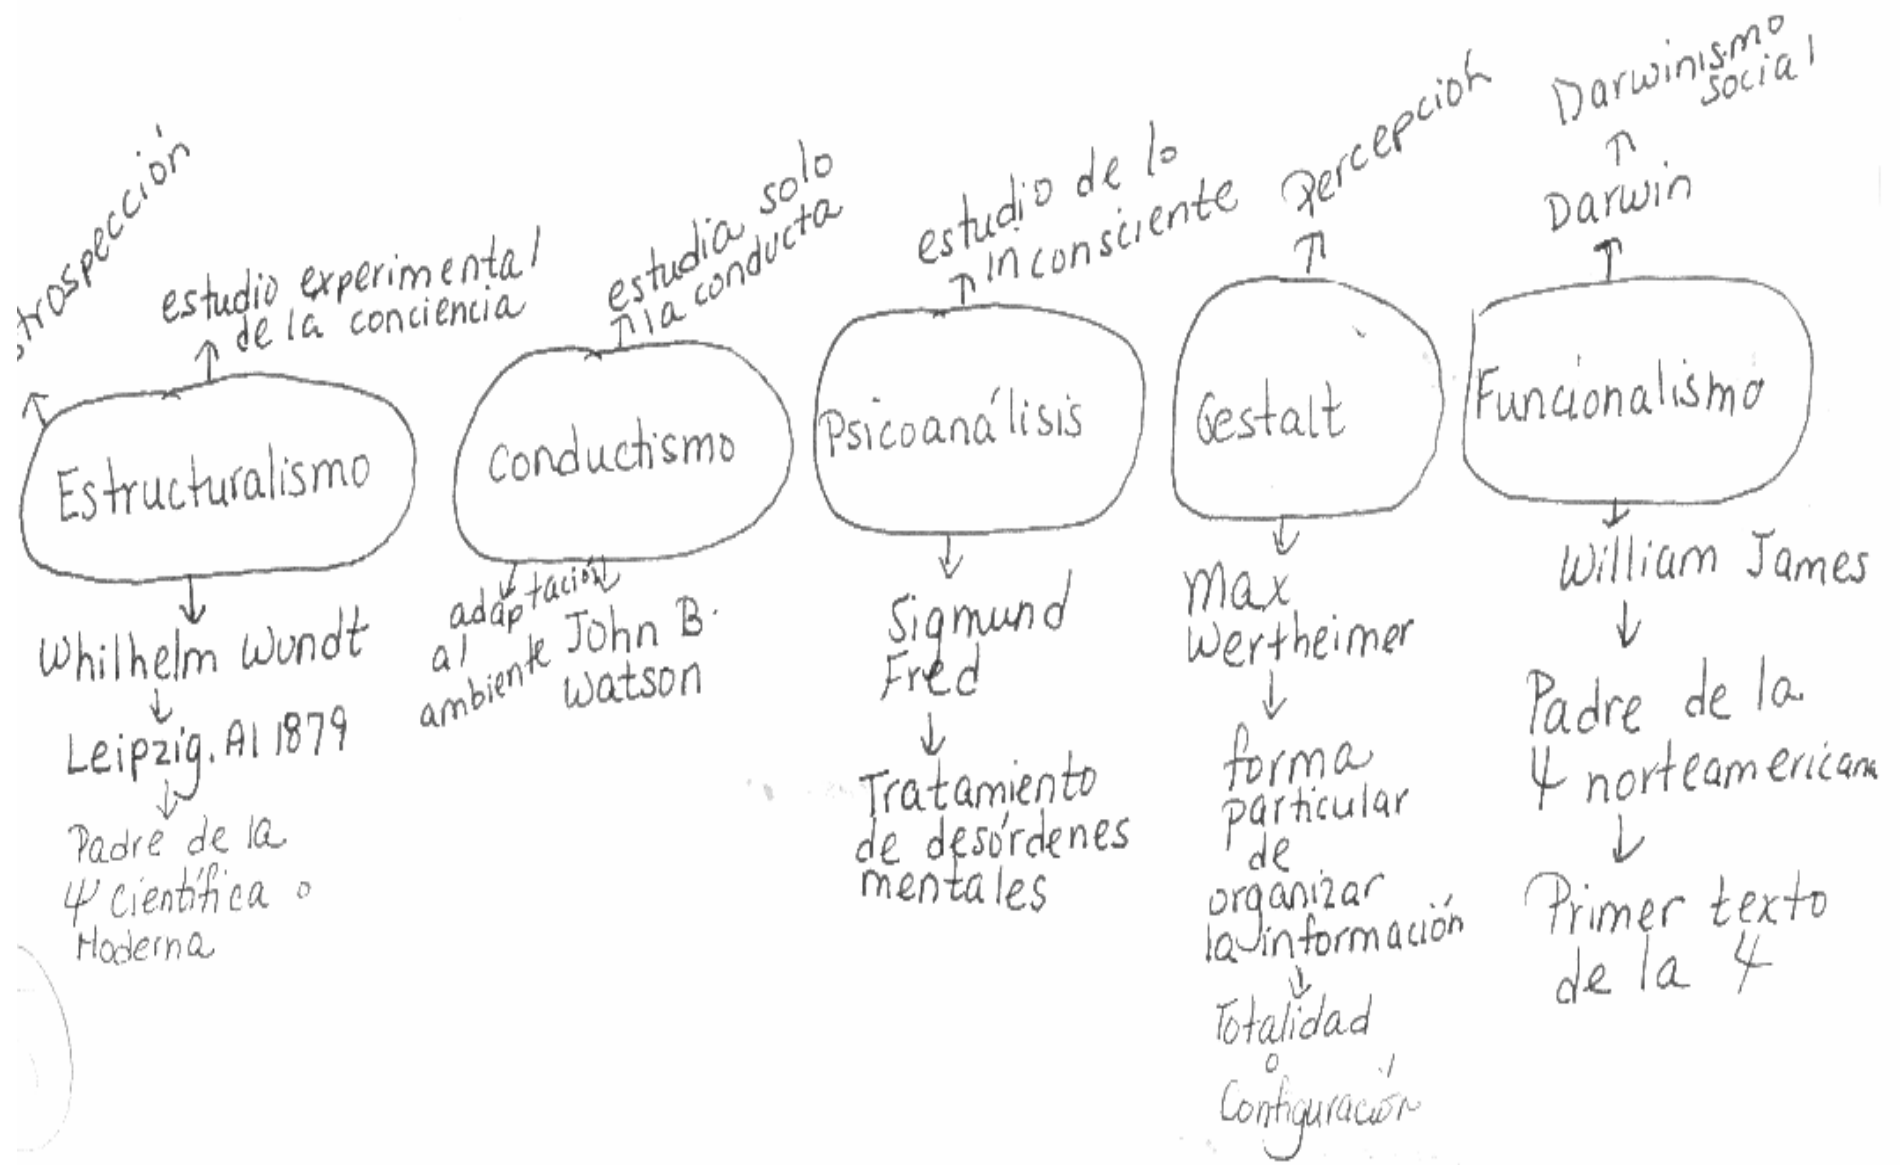 trospección
estudio experimental
de la conciencia
Estructuralismo
Whilhelm Wundt
Leipzig. Al 1879
Padre de la
Ψ Científica o
Moderna
estudia solo
la conducta
Conductismo
adaptación
al
ambiente
John B.
Watson
estudio de lo
inconsciente
Psicoanálisis
Sigmund
Fred
Tratamiento
de desórdenes
mentales
Percepción
Gestalt
Max
Wertheimer
forma
particular
de
organizar
la información
Totalidad
o
Configuración
Darwinismo
social
Darwin
Funcionalismo
William James
Padre de la
Ψ norteamericana
Primer texto
de la Ψ